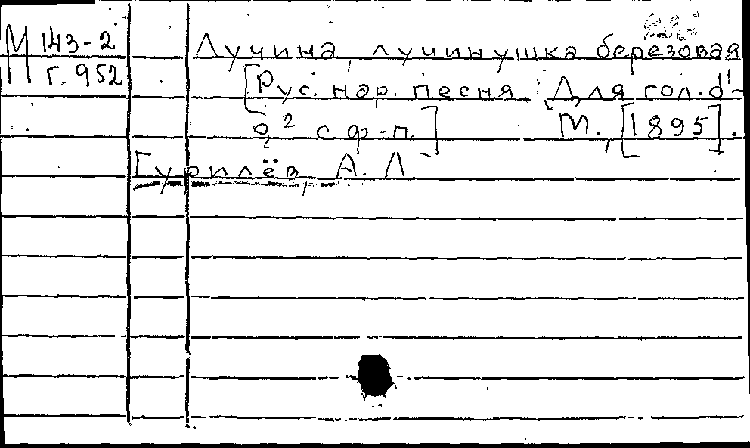 М 143-2
Г. 952
Лучина, лучинушка березовая
[Рус. нар. песня. Для гол. d¹-
g² с ф-п.] М., [1895].
Гурилёв, А. Л